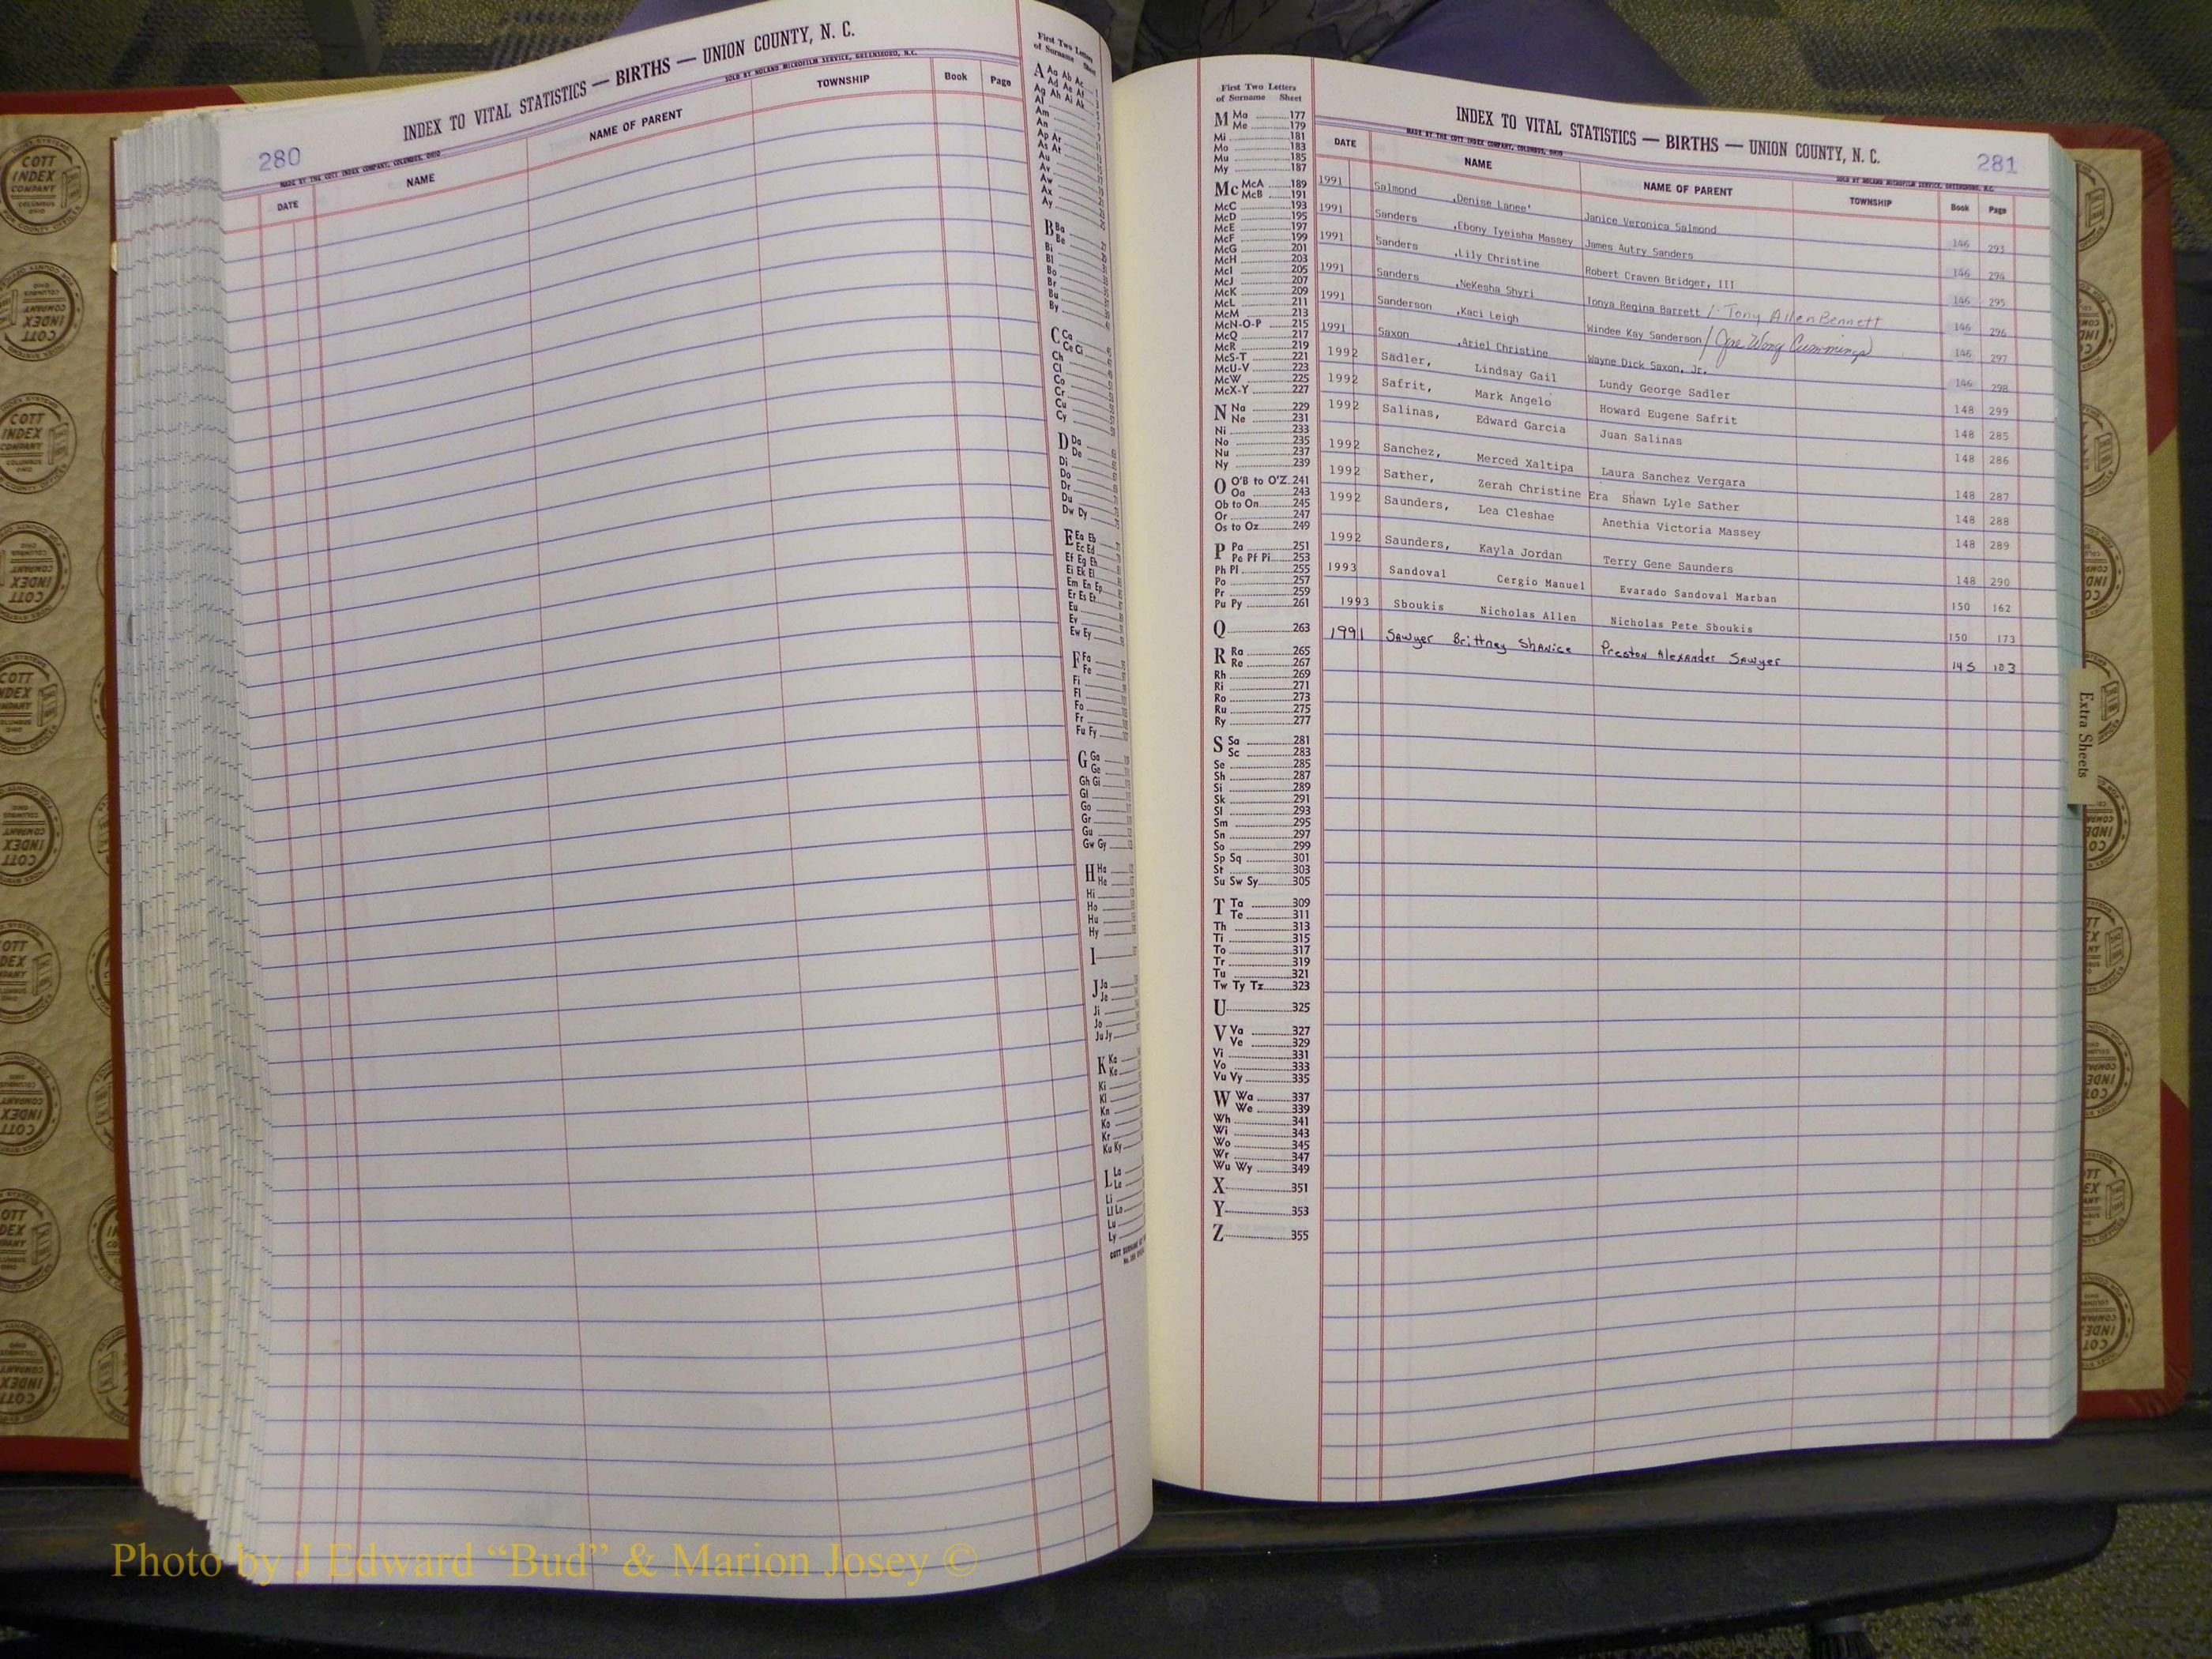 280
INDEX TO VITAL STATISTICS — BIRTHS — UNION COUNTY, N. C.
MADE BY THE COTT INDEX COMPANY, COLUMBUS, OHIO
SOLD BY NOLAND MICROFILM SERVICE, GREENSBORO, N.C.
DATE NAME NAME OF PARENT TOWNSHIP Book Page
First Two Letters
of Surname Sheet
A Aa Ab Ac
Ad Ae Af
Ag Ah Ai Ak
Al
Am
An
Ap Ar
As At
Au
Av
Aw
Ax
Ay
B Ba
Be
Bi
Bl
Bo
Br
Bu
By
C Ca
Ce Ci
Ch
Cl
Co
Cr
Cu
Cy
D Da
De
Di
Do
Dr
Du
Dw Dy
E Ea Eb
Ec Ed
Ef Eg Eh
Ei Ek El
Em En Ep
Er Es Et
Eu
Ev
Ew Ey
F Fa
Fe
Fi
Fl
Fo
Fr
Fu Fy
G Ga
Ge
Gh Gi
Gl
Go
Gr
Gu
Gw Gy
H Ha
He
Hi
Ho
Hu
Hy
I
J Ja
Je
Ji
Jo
Ju Jy
K Ka
Ke
Ki
Kl
Kn
Ko
Kr
Ku Ky
L La
Le
Li
Ll Lo
Lu
Ly
First Two Letters
of Surname Sheet
M Ma 177
Me 179
Mi 181
Mo 183
Mu 185
My 187
Mc McA 189
McB 191
McC 193
McD 195
McE 197
McF 199
McG 201
McH 203
McI 205
McJ 207
McK 209
McL 211
McM 213
McN-O-P 215
McQ 217
McR 219
McS-T 221
McU-V 223
McW 225
McX-Y 227
N Na 229
Ne 231
Ni 233
No 235
Nu 237
Ny 239
O O'B to O'Z 241
Oa 243
Ob to On 245
Or 247
Os to Oz 249
P Pa 251
Pe Pf Pi 253
Ph Pl 255
Po 257
Pr 259
Pu Py 261
Q 263
R Ra 265
Re 267
Rh 269
Ri 271
Ro 273
Ru 275
Ry 277
S Sa 281
Sc 283
Se 285
Sh 287
Si 289
Sk 291
Sl 293
Sm 295
Sn 297
So 299
Sp Sq 301
St 303
Su Sw Sy 305
T Ta 309
Te 311
Th 313
Ti 315
To 317
Tr 319
Tu 321
Tw Ty Tz 323
U 325
V Va 327
Ve 329
Vi 331
Vo 333
Vu Vy 335
W Wa 337
We 339
Wh 341
Wi 343
Wo 345
Wr 347
Wu Wy 349
X 351
Y 353
Z 355
INDEX TO VITAL STATISTICS — BIRTHS — UNION COUNTY, N. C.
281
MADE BY THE COTT INDEX COMPANY, COLUMBUS, OHIO
SOLD BY NOLAND MICROFILM SERVICE, GREENSBORO, N.C.
DATE NAME NAME OF PARENT TOWNSHIP Book Page
1991 Salmond ,Denise Lanee' Janice Veronica Salmond 146 293
1991 Sanders ,Ebony Iyeisha Massey James Autry Sanders 146 294
1991 Sanders ,Lily Christine Robert Craven Bridger, III 146 295
1991 Sanders ,NeKesha Shyri Tonya Regina Barrett / Tony Allen Bennett 146 296
1991 Sanderson ,Kaci Leigh Windee Kay Sanderson / Joe Wong Cummings 146 297
1991 Saxon ,Ariel Christine Wayne Dick Saxon, Jr. 146 298
1992 Sadler, Lindsay Gail Lundy George Sadler 148 299
1992 Safrit, Mark Angelo Howard Eugene Safrit 148 285
1992 Salinas, Edward Garcia Juan Salinas 148 286
1992 Sanchez, Merced Xaltipa Laura Sanchez Vergara 148 287
1992 Sather, Zerah Christine Era Shawn Lyle Sather 148 288
1992 Saunders, Lea Cleshae Anethia Victoria Massey 148 289
1992 Saunders, Kayla Jordan Terry Gene Saunders 148 290
1993 Sandoval Cergio Manuel Evarado Sandoval Marban 150 162
1993 Sboukis Nicholas Allen Nicholas Pete Sboukis 150 173
1991 Sawyer Brittney Shanice Preston Alexander Sawyer 145 183
Extra Sheets
COTT
INDEX
COMPANY
COLUMBUS
OHIO
Photo by J Edward “Bud” & Marion Josey ©